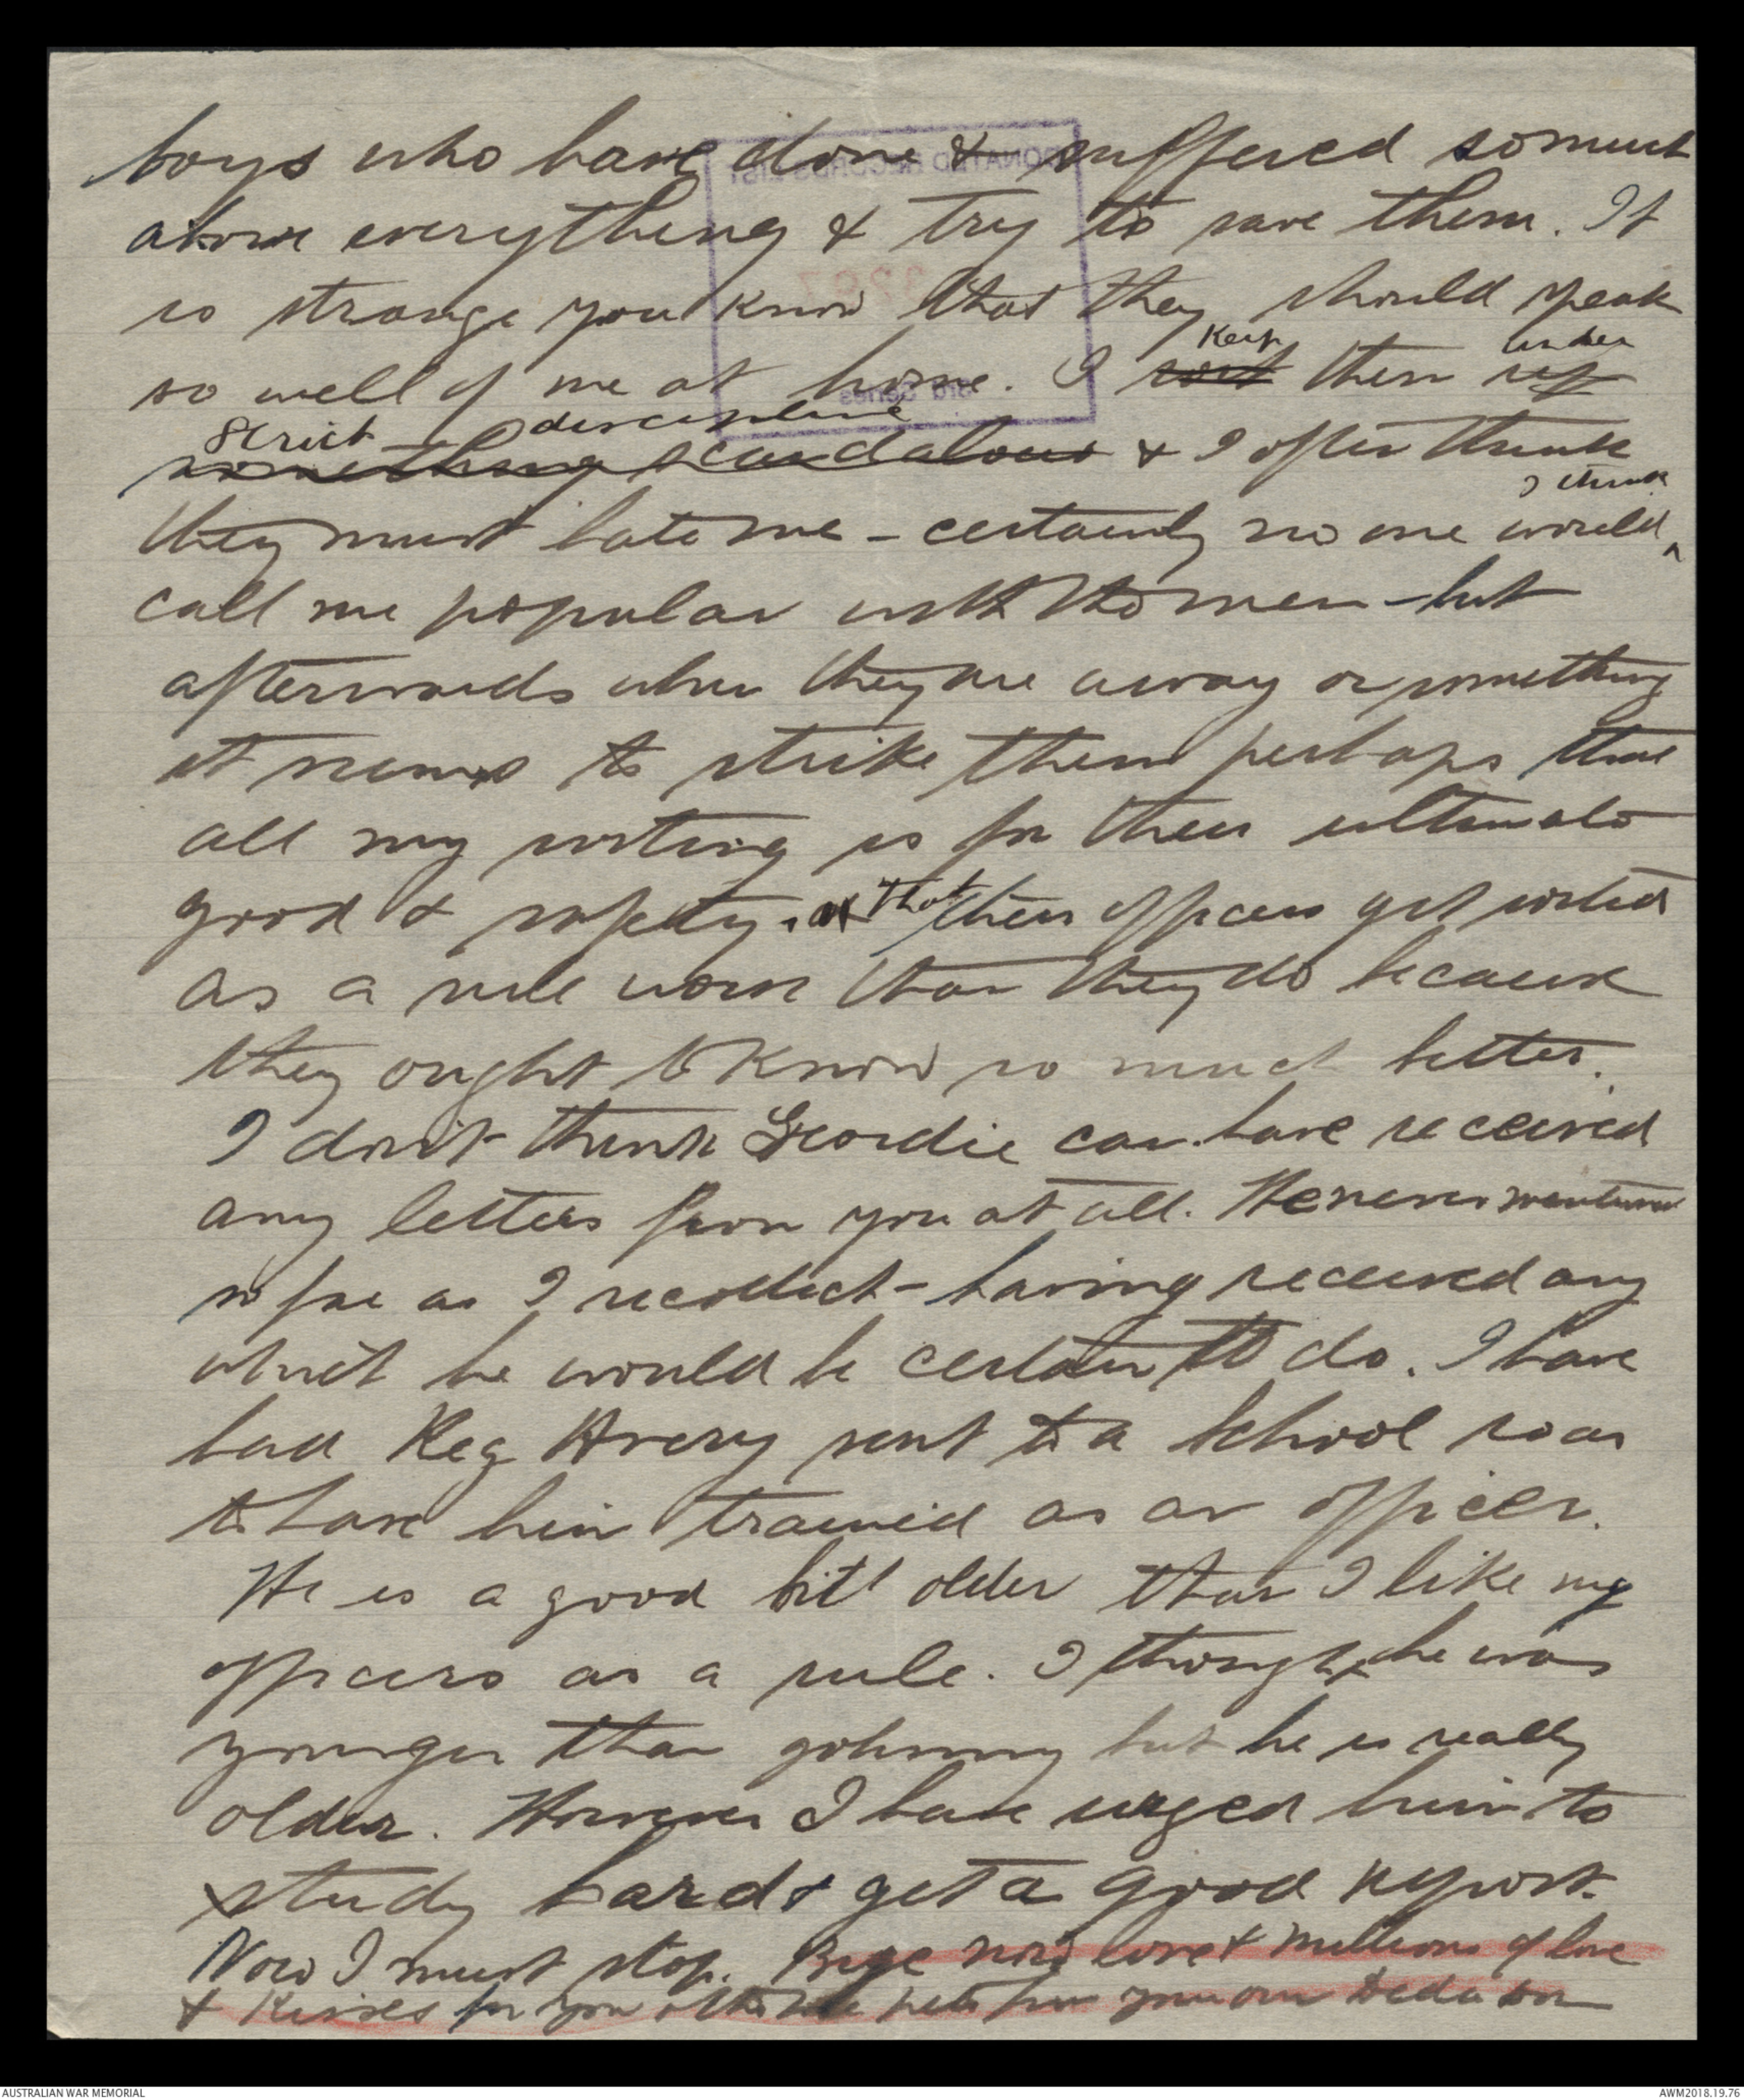 boys who have done & suffered somuch
above everything & try to save them. It
is strange you know that they should speak
Keep under
so well of me at home. I rout them up
Strict discipline
something scandalous & I often think
I think
they must hate me - certainly no one would
call me popular with the men - but
afterwards when they are away or something
it seems to strike them perhaps that
all my roting is for their ultimate
good & safety. & that their officers get roted
as a rule worse than they do because
they ought to know so much better.
I don't think Geordie can have received
any letters from you at all. He never mentioned
so far as I recollect - having received any
which he would be certain to do. I have
had Reg Avery sent to a School so as
to have him trained as an officer.
He is a good bit older than I like my
officers as a rule. I thought he was
younger than Johnny but he is really
older. However I have urged him to
study hard & get a good report.
Now I must stop. Bye now love & millions of love
& Kisses for you & the pets from your own
DONATED RECORDS LIST
3297
3rd Series
AUSTRALIAN WAR MEMORIAL
AWM2018.19.76